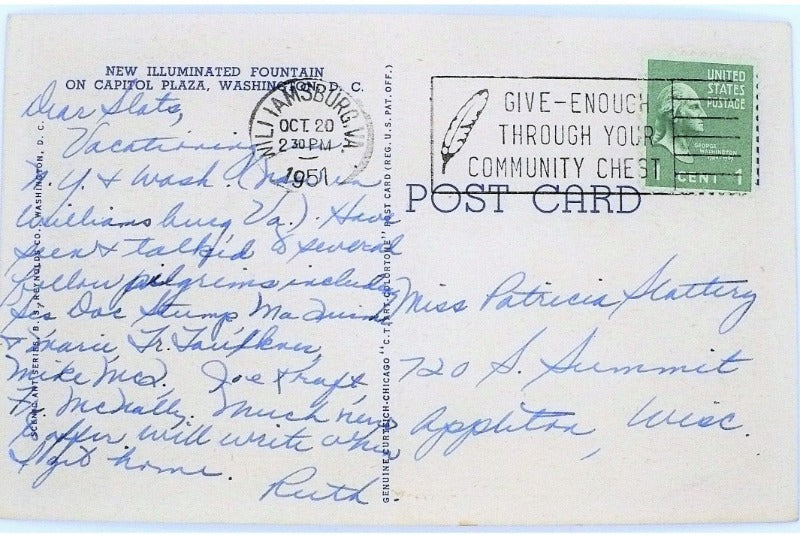 NEW ILLUMINATED FOUNTAIN
ON CAPITOL PLAZA, WASHINGTON, D. C.
Dear Slats,
Vacationing
N.Y & Wash. (
Williamsburg Va.). Have
seen & talk'd to several
fellow pilgrims including
Doc Stump Ma
& Marie Fr. Faulkner,
Mike McD. Joe Kraft
Fr. McNally. Much news
to offer will write when
I get home.
Ruth
WILLIAMSBURG, VA.
OCT 20
2 30 PM
1951
GIVE-ENOUGH
THROUGH YOUR
COMMUNITY CHEST
UNITED
STATES
POSTAGE
GEORGE
WASHINGTON
1 CENT 1
POST CARD
Miss Patricia Slattery
720 S. Summit
Appleton, Wisc.
B. S. REYNOLDS CO., WASHINGTON, D. C.
GENUINE CURTEICH-CHICAGO "C.T. ART-COLORTONE" POST CARD (REG. U.S. PAT. OFF.)